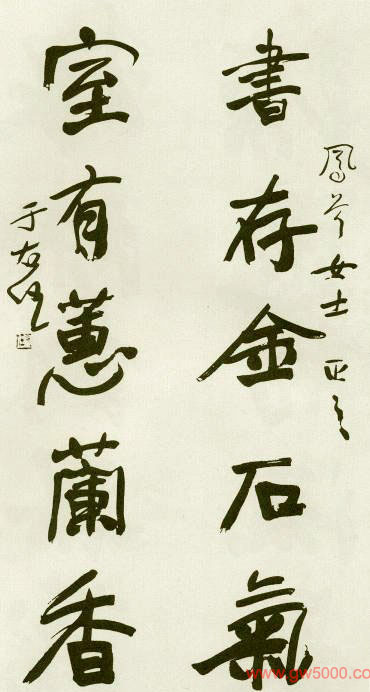 鳳芩女士 正之
書存金石氣
室有蕙蘭香
于右任
www.gw5000.co